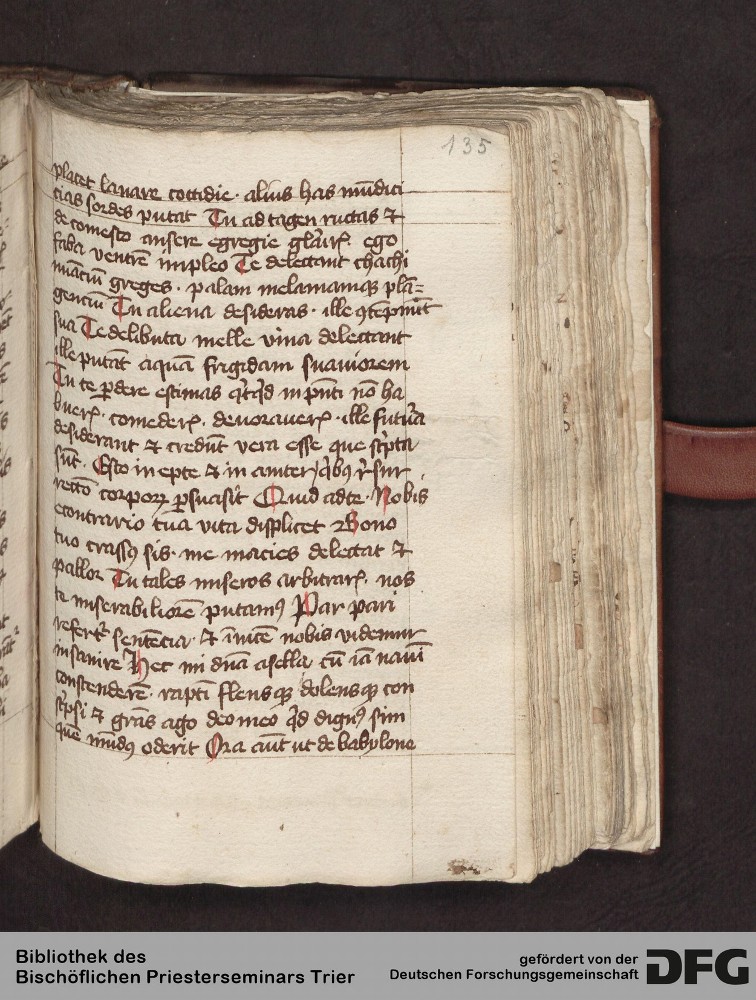 135
placet lauare cottidie · alius has mūdici
cias sordes putat Tu ad tagen ructas ⁊
de comesto ansere egregie gla'ir̄ꝭ ego
faba ventrē impleo Te delectant chachi
nnāciū greges · palam melamamqꝫ plā=
genciū Tu aliena desideras · ille ꝯtēpnūt
sua Te delibuta melle vina delectant
ille putāt aquā frigidam suauiorem
Tu te ꝑdere estimas q̇tq̇d in pn̄ti nō ha
buerꝭ · comederꝭ · deuorauerꝭ · ille futura
desiderant ⁊ credūt vera esse que sc̓pta
sūt · Esto in epte ⁊ in
rectō corporꝝ ꝑsuasit Quid ad te · Nobis
econtrario tua vita displicet Bono
tuo crassꝰ sis · me macies delectat ⁊
pallor Tu tales miseros arbitrarꝭ · nos
te miserabiliorē putamꝰ Par pari
refert᷑ sentēcia · ⁊ īuicē nobis videmur
insanire Hec mi dn̄a asella cū iā nauī
constenderē · raptī flensqꝫ dolensqꝫ con
sc̓psi ⁊ grās ago deo meo q̇d dignꝰ sim
quē mūdꝰ oderit Ora aūt ut de babylone
Bibliothek des
Bischöflichen Priesterseminars Trier
gefördert von der
Deutschen Forschungsgemeinschaft
DFG